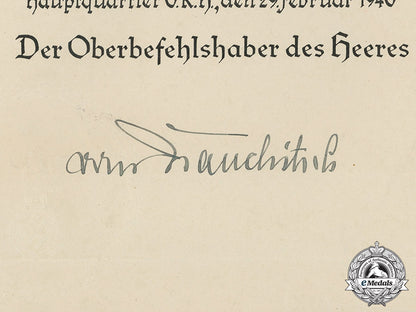 Hauptquartier O.K.H., den 29. Februar 1940
Der Oberbefehlshaber des Heeres
von Brauchitsch
eMedals